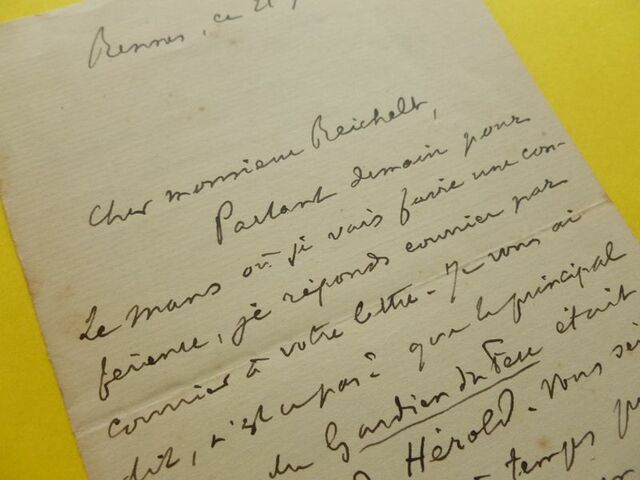 Rennes, ce 21
Cher monsieur Reichelt,
Partant demain pour
Le Mans où je vais faire une con-
férence, je réponds courrier par
courrier à votre lettre. Je vous ai
dit, n'est ce pas? que le principal
du Gardien du Feu était
Hérold. Vous
temps